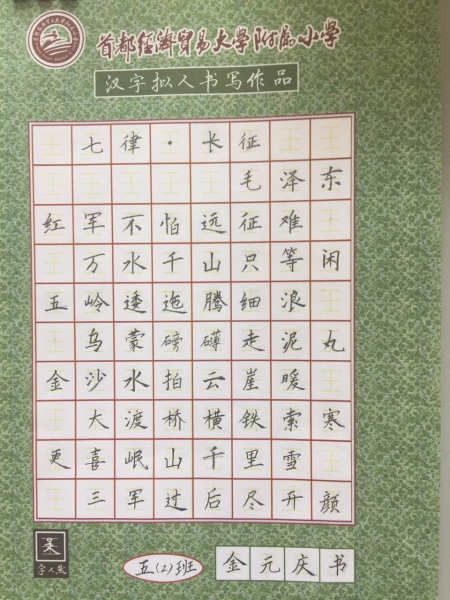 首都经济贸易大学附属小学
汉字拟人书写作品
七律·长征
毛泽东
红军不怕远征难
万水千山只等闲
五岭逶迤腾细浪
乌蒙磅礴走泥丸
金沙水拍云崖暖
大渡桥横铁索寒
更喜岷山千里雪
三军过后尽开颜
五(2)班 金元庆书